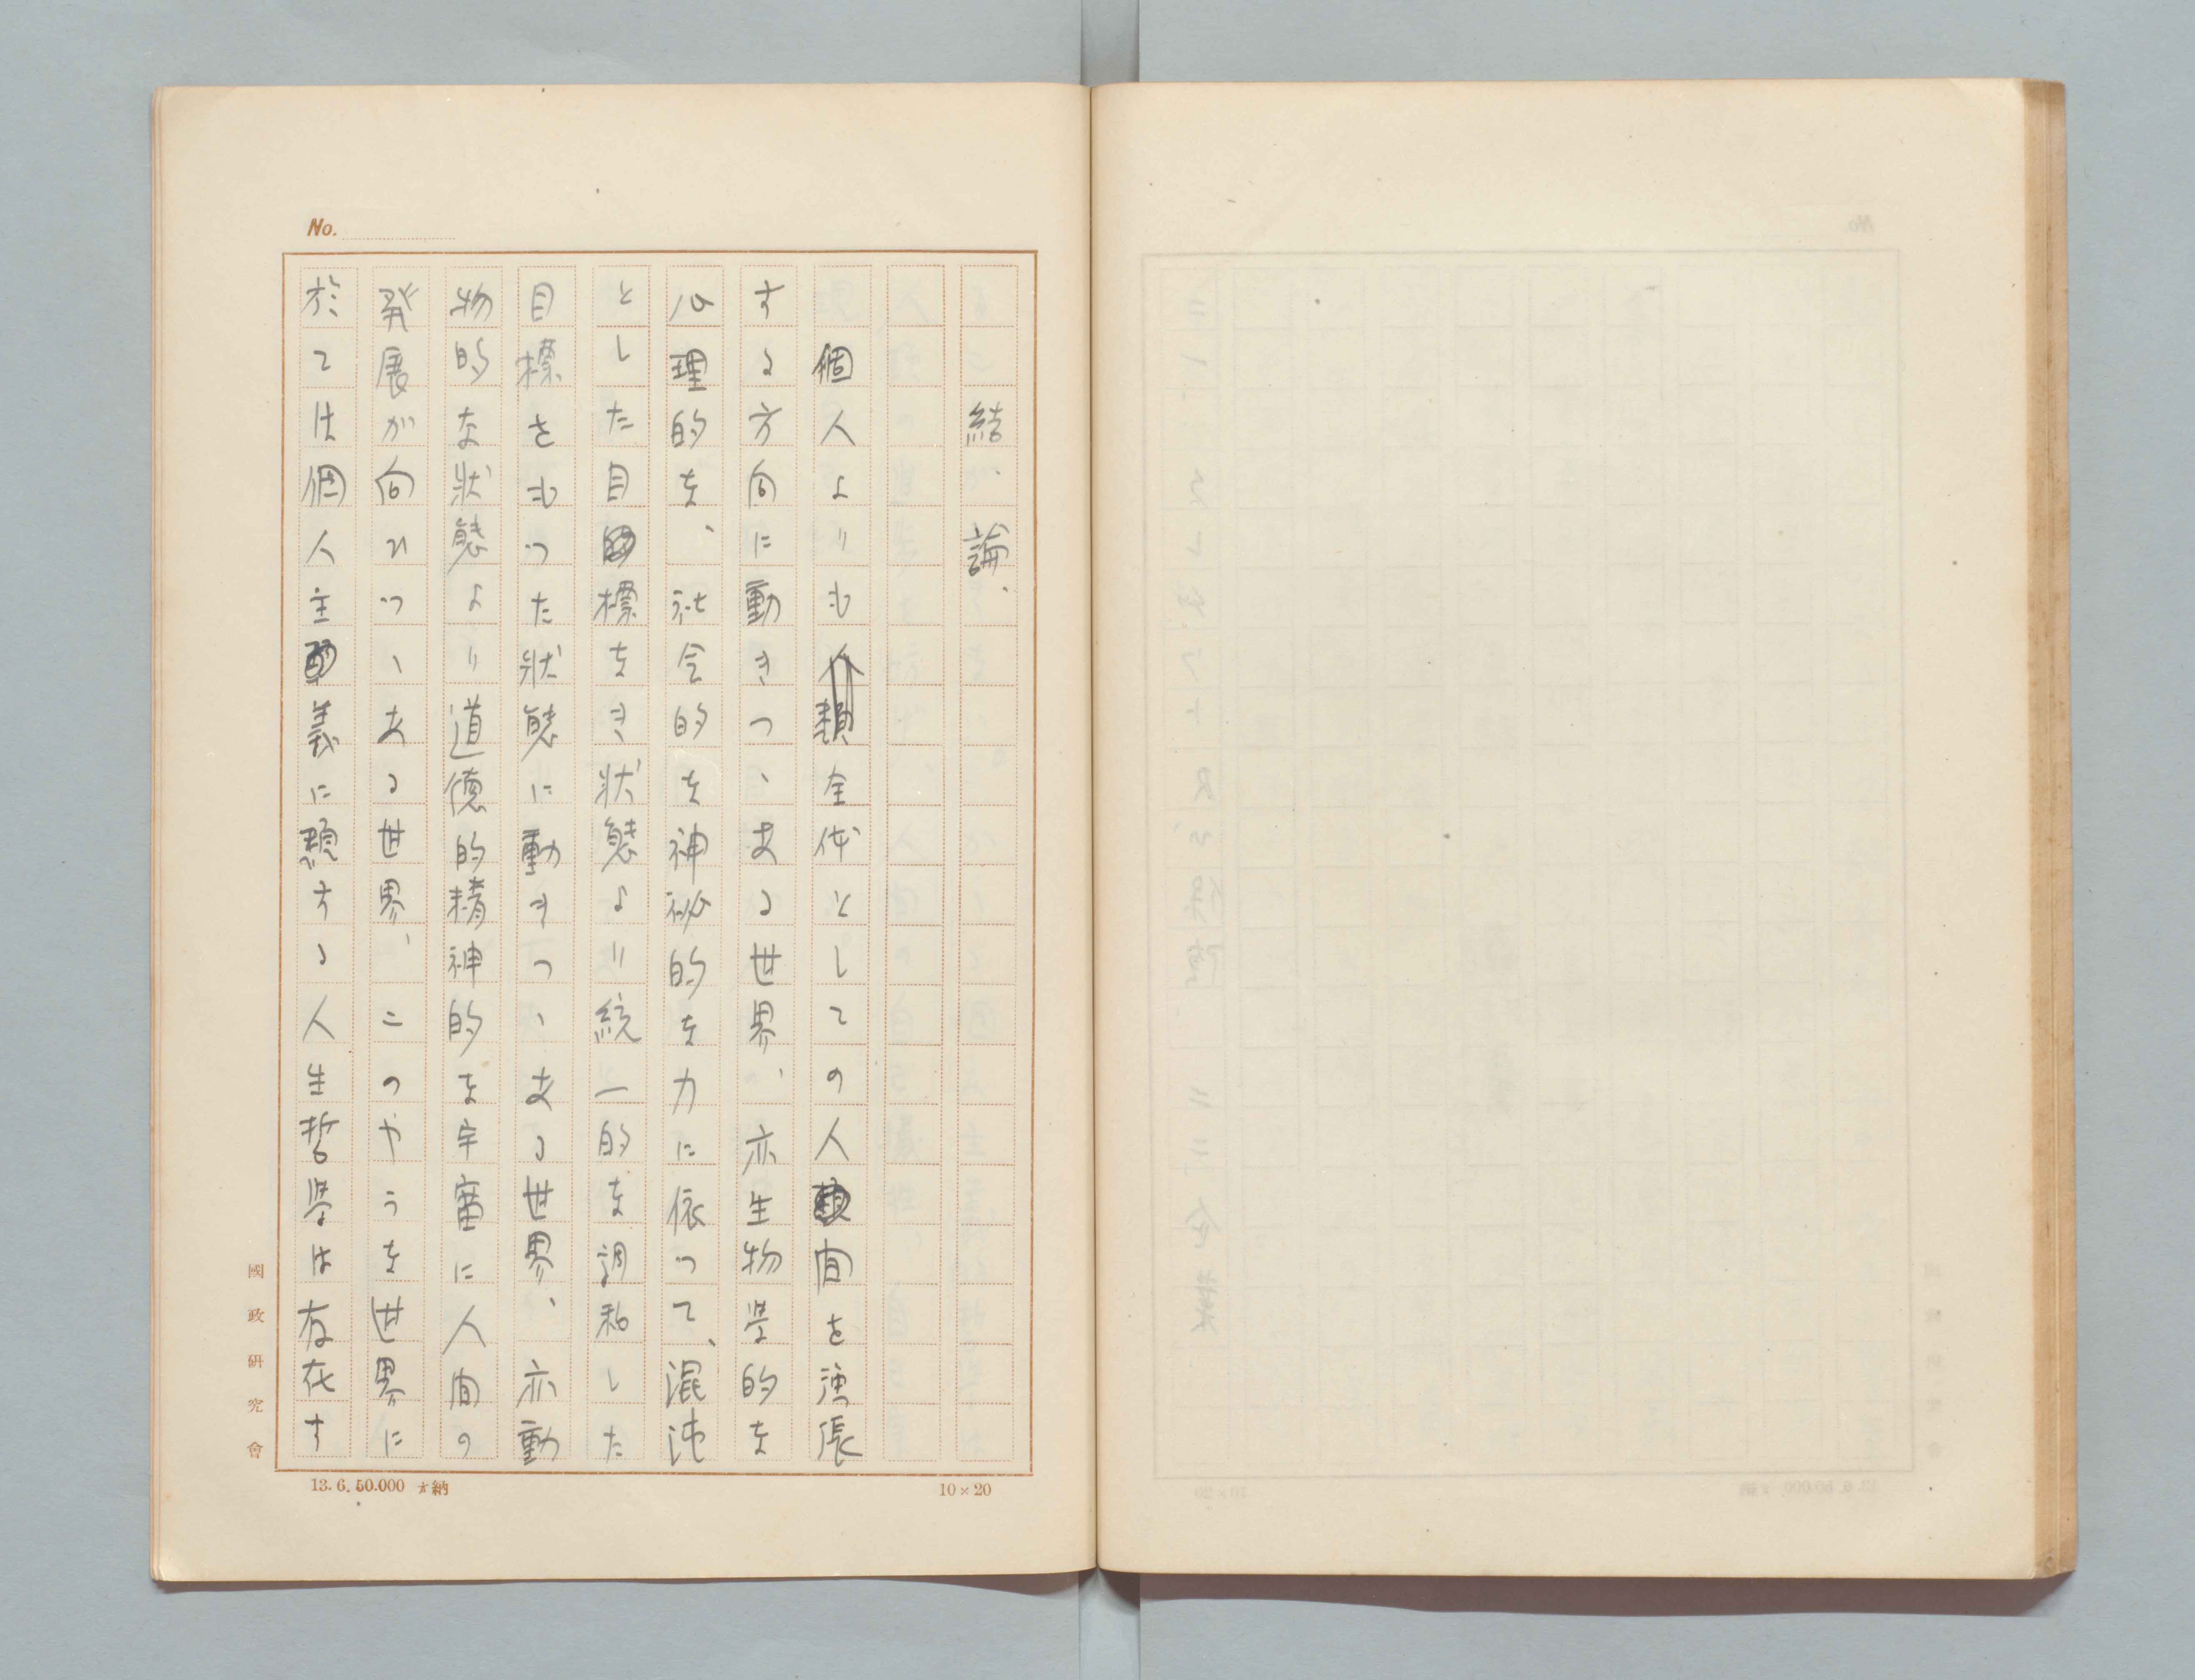 No.
結、論、
個人よりも人類全体としての人間を強張
する方向に動きつゝある世界、亦生物学的な
心理的な、社会的な神秘的な力に依つて、混沌
とした目標なき状態より統一的な調和した
目標をもつた状態に動きつゝある世界、亦動
物的な状態より道徳的精神的な宇宙に人間の
発展が向ひつゝある世界、このやうな世界に
於ては個人主義に類する人生哲学は存在す
國政研究會
13.6.50.000 納
10×20